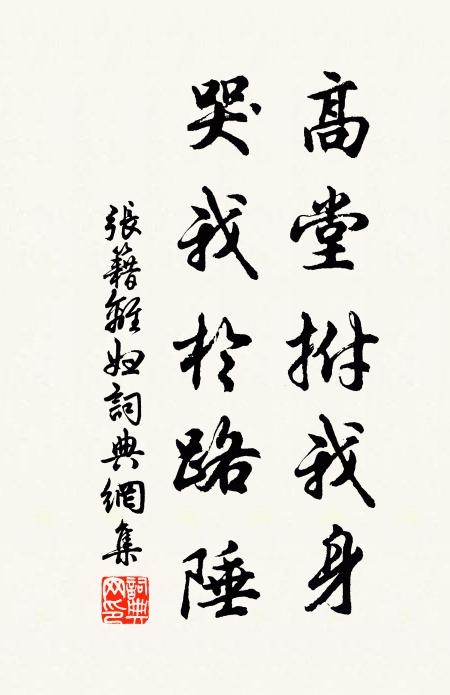 高堂拊我身
哭我於路陲
張籍離婦詞典網集
詞典
网印